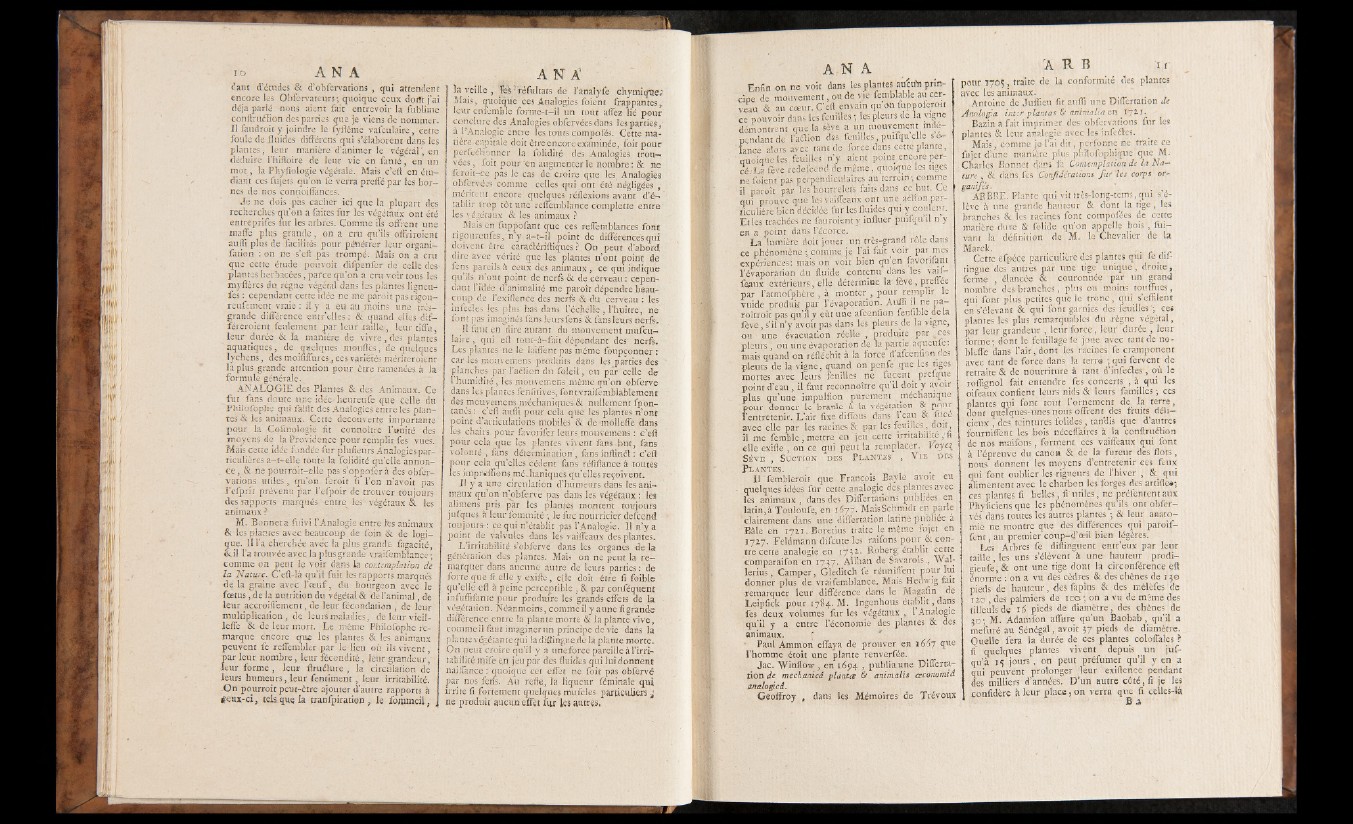 10 A N A
tant d'études & d'observations, qui attendent
encore les Observateurs; quoique ceux dont j'ai
déja parlé nous aient fait entrevoir la sublime
construction des parties que je viens de nommer.
Il faudroit y joindre le systême vasculaire, cette
foule de fluides différens qui s'élaborent dans les
plantes, leur manière d'animer le végétal, en
déduire l'histoire de leur vie en santé, en un
mot, la Physiologie végétale. Mais c'est en étu-
diant ces sujets qu'on se verra pressé par les bor-
nes de nos connoissances.
Je ne dois pas cacher ici que la plupart des
recherches qu'on a faites sur les végétaux ont été
entreprises sur les arbres. Comme ils offrent une
masse plus grande, on a cru qu'ils offriroient
aussi plus de facilités pour pénétrer leur organi-
sation : on ne s'est pas trompé. Mais on a cru
que cette étude pouvoit dispenser de celle des
plantes herbacées, parce qu'on a cru voir tous les
mystères du règne végétal dans les plantes ligneu-
ses : cependant cette idée ne me paroît pas rigou-
reusement vraie : il y a eu au moins une très-
grande différence entr'elles : & quand elles dif-
féreroient seulement par leur taille, leur tissu,
leur durée & la manière de vivre, des plantes
aquatiques, de quelques mousses, de quelques
lychens, des moisissures, ces variétés mériteroient
la plus grande attention pour être ramenées à la
formule générale.
ANALOGIE des Plantes & des Animaux. Ce
fut sans doute une idée heureuse que celle du
Philosophe qui saisit des Analogies entre les plan-
tes & les animaux. Cette découverte importante
pour la Cosmologie fit connoître l'unité des
moyens de la Providence pour remplir ses vues.
Mais cette idée fondée sur plusieurs Analogies par-
ticulières a-t-elle toute la solidité qu'elle annon-
ce, & ne pourroit-elle pas s'opposer à des obser-
vations utiles, qu'on feroit si l'on n'avoit pas
l'esprit prévenu par l'espoir de trouver toujours
des rapports marqués entre les végétaux & les
animaux ?
M. Bonnet a suivi l'Analogie entre les animaux
& les plantes avec beaucoup de soin & de logi-
que. Il l'a cherchée avec la plus grande sagacité,
& il l'a trouvée avec la plus grande vraisemblance ;
comme on peut le voir dans la contemplation de
la Nature. C'est-là qu'il suit les rapports marqués
de la graine avec l'œuf, du bourgeon avec le
fœtus, de la nutrition du végétal & de l'animal, de
leur accroissement, de leur fécondation, de leur
multiplication, de leurs maladies, de leur vieil-
lesse & de leur mort. Le même Philosophe re-
marque encore que les plantes & les animaux
peuvent se ressembler par le lieu où ils vivent,
par leur nombre, leur fécondité, leur grandeur,
leur forme, leur structure, la circulation de
leurs humeurs, leur sentiment, leur irritabilité.
On pourroit peut-être ajouter d'autre rapports à
ceux-ci, tels que la transpiration, le sommeil,
A N A
la veille, les résultats de l'analyse chymique;
Mais, quoique ces Analogies soient frappantes,
leur ensemble forme-t-il un tout assez lié pour
conclure des Analogies observées dans les parties,
à l'Analogie entre les touts composés. Cette ma-
tière capitale doit être encore examinée, soit pour
perfectionner la solidité des Analogies trou-
vées, soit pour en augmenter le nombre : & ne
seroit-ce pas le cas de croire que les Analogies
observées comme celles qui ont été négligées,
méritent encore quelques réflexions avant d'é-
tablir trop tôt une ressemblance complette entre
les végétaux & les animaux ?
Mais en supposant que ces ressemblances sont
rigoureuses, n'y a-t-il point de différences qui
doivent être caractéristiques ? On peut d'abord
dire avec vérité que les plantes n'ont point de
sens pareils à ceux des animaux, ce qui indique
qu'ils n'ont point de nerfs & de cerveau : cepen-
dant l'idée d'animalité me paroît dépendre beau-
coup de l'existence des nerfs & du cerveau : les
insectes les plus bas dans l'échelle, l'huitre, ne
sont pas imaginés sans leurs sens & sans leurs nerfs.
Il faut en dire autant du mouvement muscu-
laire, qui est tout-à-fait dépendant des nerfs.
Les plantes ne le laissent pas même soupçonner :
car les mouvemens produits dans les parties des
planches par l'action du soleil, ou par celle de
l'humidité, les mouvemens même qu'on observe
dans les plantes sensitives, sont vraisemblablement
des mouvemens méchaniques & nullement spon-
tanés : c'est aussi pour cela que les plantes n'ont
point d'articulations mobiles & de mollesse dans
les chairs pour favoriser leurs mouvemens : c'est
pour cela que les plantes vivent sans but, sans
volonté, sans détermination, sans instinct : c'est
pour cela qu'elles cèdent sans résistance à toutes
les impressions méchaniques qu'elles reçoivent.
Il y a une circulation d'humeurs dans les ani-
maux qu'on n'observe pas dans les végétaux : les
alimens pris par les plantes montent toujours
jusques à leur sommité, le suc nourricier descend
toujours : ce qui n'établit pas l'Analogie. Il n'y a
point de valvules dans les vaisseaux des plantes.
L'irritabilité s'observe dans les organes de la
génération des plantes. Mais on ne peut la re-
marquer dans aucune autre de leurs parties : de
sorte que si elle y existe, elle doit être si foible
qu'elle est à peine perceptible, & par conséquent
insuffisante pour produire les grands effets de la
végétation. Néanmoins, comme il y a une si grande
différence entre la plante morte & la plante vive,
comme il faut imaginer un principe de vie dans la
plante végétante qui la distingue de la plante morte.
On peut croire qu'il y a une force pareille à l'irri-
tabilité mise en jeu par des fluides qui lui donnent
naissance : quoique cet effet ne soit pas observé
par nos sens. Au reste, la liqueur séminale qui
irrite si fortement quelques muscles particuliers ;
ne produit aucun effet sur les autres.
A N A
Enfin on ne voit dans les plantes aucun prin-
cipe de mouvement, ou de vie semblable au cer-
veau & au cœur. C'est envain qu'on supposeroit
ce pouvoir dans les feuilles ; les pleurs de la vigne
démontrent que la sève a un mouvement indé-
pendant de l'action des feuilles, puisqu'elle s'é-
lance alors avec tant de force dans cette plante,
quoique les feuilles n'y aient point encore per-
cé. La sève redescend de même, quoique les tiges
ne soient pas perpendiculaires au terrein ; comme
il paroît par les bourrelets faits dans ce but. Ce
qui prouve que les vaisseaux ont une action par-
ticulière bien décidée sur les fluides qui y coulent.
Et les trachées ne sauroient y influer puisqu'il n'y
en a point dans l'écorce.
La lumière doit jouer un très-grand rôle dans
ce phénomène ; comme je l'ai fait voir par mes
expériences : mais on voit bien qu'en favorisant
l'évaporation du fluide contenu dans les vais-
seaux extérieurs, elle détermine la sève, pressée
par l'atmosphère, à monter, pour remplir le
vuide produit par l'évaporation. Aussi il ne pa-
roîtroit pas qu'il y eût une ascension sensible de la
sève, s'il n'y avoit pas dans les pleurs de la vigne,
ou une évacuation réelle, produite par ces
pleurs, ou une évaporation de la partie aqueuse:
mais quand on réfléchit à la force d'ascension des
pleurs de la vigne, quand on pense que les tiges
mortes avec leurs feuilles ne sucent presque
point d'eau, il faut reconnoître qu'il doit y avoir
plus qu'une impulsion purement méchanique
pour donner le branle à la végétation & pour
l'entretenir. L'air fixe dissous dans l'eau & sucé
avec elle par les racines & par les feuilles, doit,
il me semble, mettre en jeu cette irritabilité, si
elle existe, ou ce qui peut la remplacer. Voyez
SÈVE, SUCTION DES PLANTES, VIE DES
PLANTES.
Il sembleroit que François Bayle avoit eu
quelques idées sur cette analogie des plantes avec
les animaux, dans des Dissertations publiées en
latin, à Toulouse, en 1677. Mais Schmidt en parle
clairement dans une dissertation latine publiée à
Bâle en 1721. Boretius traite le même sujet en
1727. Feldmenn discute les raisons pour & con-
tre cette analogie en 1732. Roberg établit cette
comparaison en 1737. Alstan de Savarois, Wal-
lerius, Camper, Gleditch se réunissent pour lui
donner plus de vraisemblance. Mais Hedwig fait
remarquer leur différence dans le Magasin de
Leipsick pour 1784. M. Ingenhous établit, dans
ses deux volumes sur les végétaux, l'Analogie
qu'il y a entre l'économie des plantes & des
animaux.
Paul Ammon essaya de prouver en 1667 que
l'homme étoit une plante renversée.
Jac. Winslow, en 1694, publia une Disserta-
tion de mechanicâ plantæ & animalis œconomiâ
analogicâ.
Geoffroy, dans les Mémoires de Trévoux
A R B 11
pour 1705, traite de la conformité des plantes
avec les animaux.
Antoine de Jussieu fit aussi une Dissertation de
Analogia inter plantas & animalia en 1721.
Bazin a fait imprimer des observations sur les
plantes & leur analogie avec les insectes.
Mais, comme je l'ai dit, personne ne traite ce
sujet d'une manière plus philosophique que M.
Charles Bonnet dans sa Contemplation de la Na-
ture, & dans ses Considérations sur les corps or-
ganisés.
ARBRE. Plante qui vit très-long-tems, qui s'é-
lève à une grande hauteur & dont la tige, les
branches & les racines sont composées de cette
matière dure & solide qu'on appelle bois, sui-
vant la définition de M. le Chevalier de la
Marck.
Cette espèce particulière des plantes qui se dis-
tingue des autres par une tige unique, droite,
ferme, élancée & couronnée par un grand
nombre des branches, plus ou moins touffues,
qui sont plus petites que le tronc, qui s'effilent
en s'élevant & qui sont garnies des feuilles ; ces
plantes les plus remarquables du règne végétal,
par leur grandeur, leur force, leur durée, leur
forme ; dont le feuillage se joue avec tant de no-
blesse dans l'air, dont les racines se cramponent
avec tant de force dans la terre ; qui servent de
retraite & de nourriture à tant d'insectes, où le
rossignol fait entendre ses concerts, à qui les
oiseaux confient leurs nids & leurs familles ; ces
plantes qui sont tout l'ornement de la terre,
dont quelques-unes nous offrent des fruits déli-
cieux, des teintures solides, tandis que d'autres
fournissent les bois nécessaires à la construction
de nos maisons, forment ces vaisseaux qui sont
à l'épreuve du canon & de la fureur des flots,
nous donnent les moyens d'entretenir ces feux
qui font oublier les rigueurs de l'hiver, & qui
alimentent avec le charbon les forges des artistes;
ces plantes si belles, si utiles, ne présentent aux
Physiciens que les phénomènes qu'ils ont obser-
vés dans toutes les autres plantes ; & leur anato-
mie ne montre que des différences qui parois-
sent, au premier coup-d'œil bien légères.
Les Arbres se distinguent entr'eux par leur
taille, les uns s'élèvent à une hauteur prodi-
gieuse, & ont une tige dont la circonférence est
énorme : on a vu des cèdres & des chênes de 140
pieds de hauteur, des sapins & des mélèses de
120, des palmiers de 100 ; on a vu de même des
tilleuls de 16 pieds de diamètre, des chênes de
30 ; M. Adamson assure qu'un Baobab, qu'il a
mesuré au Sénégal, avoit 37 pieds de diamètre.
Quelle sera la durée de ces plantes colossales ?
si quelques plantes vivent depuis un jus-
qu'à 15 jours, on peut présumer qu'il y en a
qui peuvent prolonger leur existence pendant
des milliers d'années. D'un autre côté, si je les
considère à leur place, on verra que si celles-là
B 2